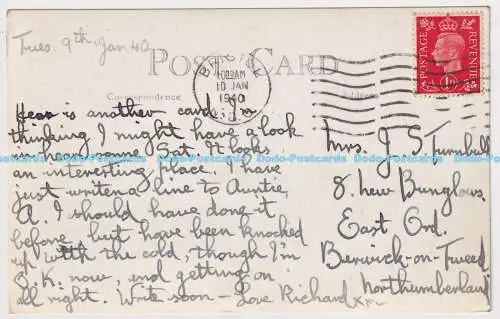 Tues. 9th. Jan 40
POST CARD
Correspondence
10 JAN
1940
POSTAGE
REVENUE
1D
Here is another card. I'm
thinking I might have a look
in here some Sat. It looks
an interesting place. I have
just written a line to Auntie
A. I should have done it
before but have been knocked
up with the cold, though I'm
O.K. now, and getting on
all right. Write soon - Love Richard xx
Mrs. J. S. Turnbull
8. New Bunglows.
East Ord.
Berwick-on-Tweed
Northumberland
Dodo-Postcards Dodo-Postcards Dodo-Postcards Dodo-Postcards Dodo-Postcards Dodo-Postcards